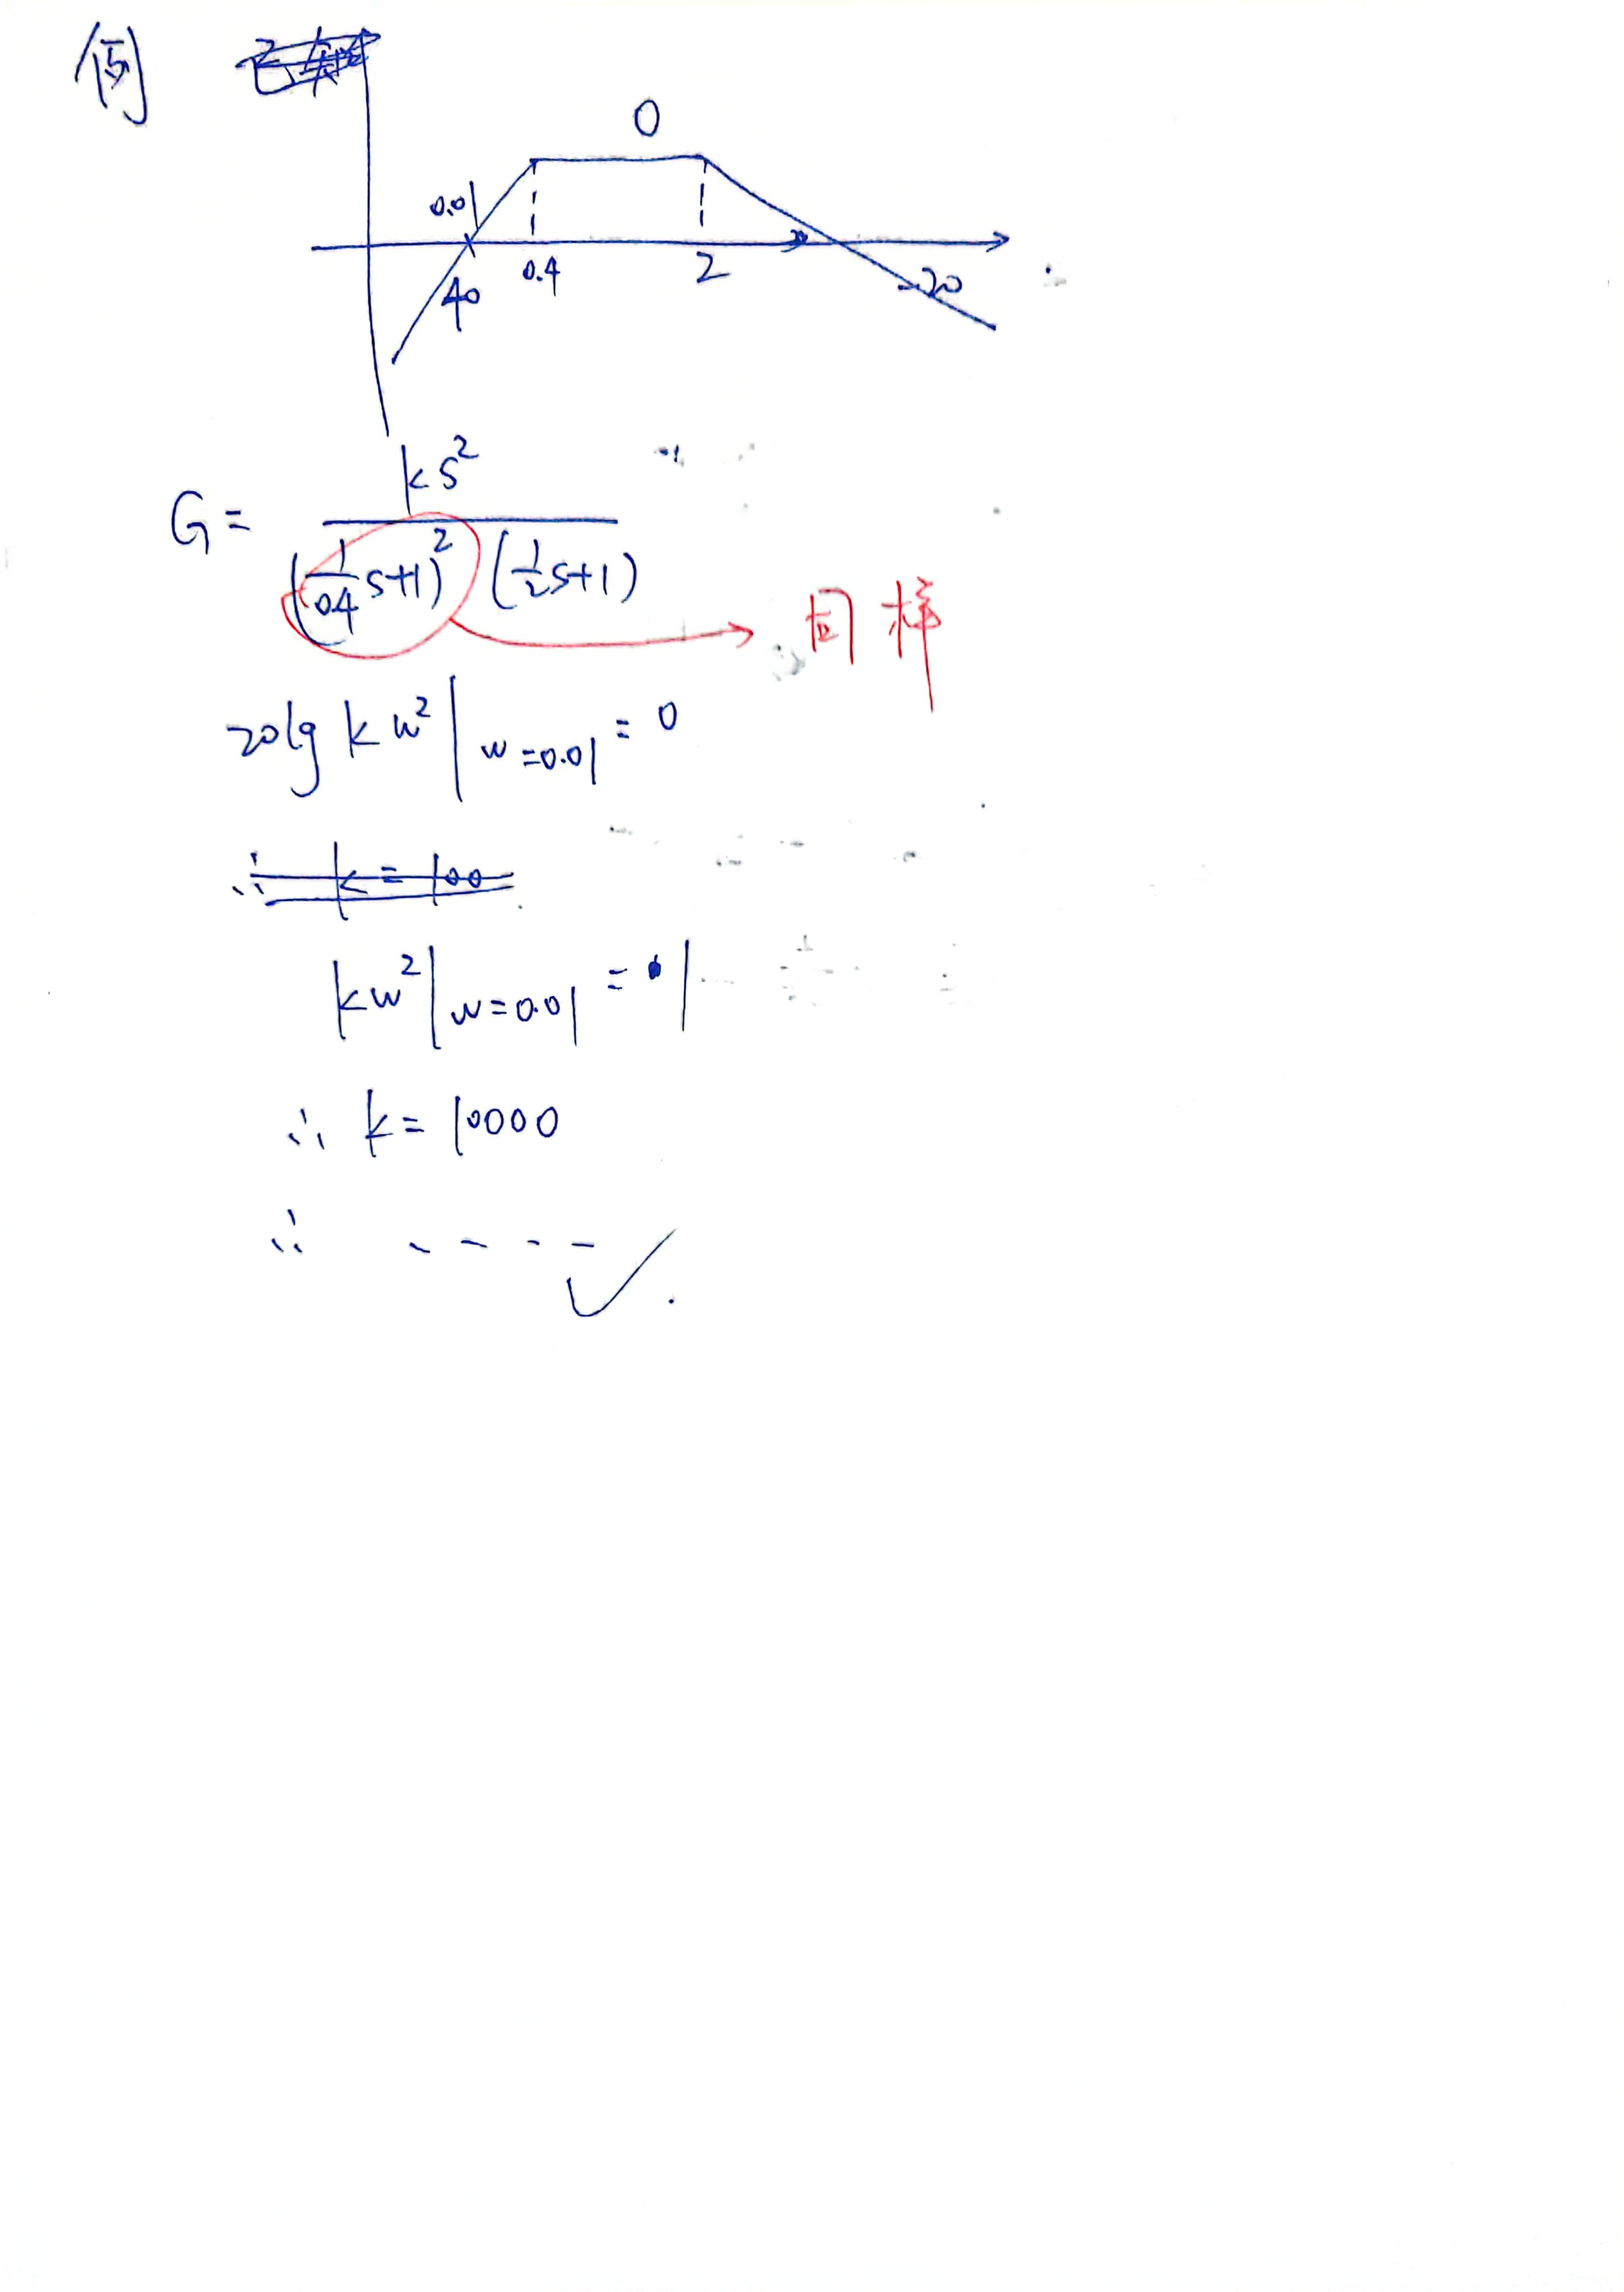 例
0
0.01
40
0.4
2
-20
G = ks² / (1/0.4 s+1)² (1/2 s+1)
同样
20lg kw² | w=0.01 = 0
∴ k = 100
kw² | w=0.01 = 1
∴ k = 10000
∴ - - - -